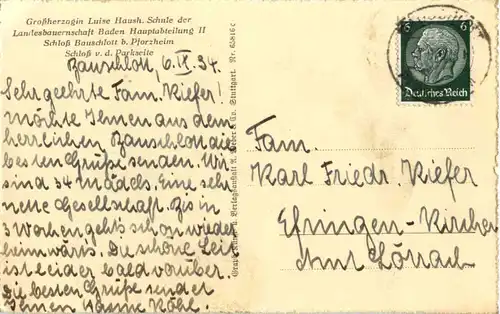 Großherzogin Luise Haush. Schule der
Landesbauernschaft Baden Hauptabteilung II
Schloß Bauschlott b. Pforzheim
Schloß v. d. Parkseite
Bauschlott, 6. IX. 34.
Sehr geehrte Fam. Kiefer!
möchte Ihnen aus dem
herrlichen Bauschlott die
besten Grüße senden. Wir
sind 34 Mädels. Eine sehr
nette Gesellschaft. Bis in
3 Wochen geht's schon wieder
heimwärts. Die schöne Zeit
ist leider bald vorüber.
Die besten Grüße sendet
Ihnen Hanne Köhl.
Graph. u. Verlagsanstalt A. Weber & Co. Stuttgart. Nr. 65816 c
6 6
Deutsches Reich
Fam.
Karl Friedr. Kiefer
Efringen-Kirchen
Amt Lörrach